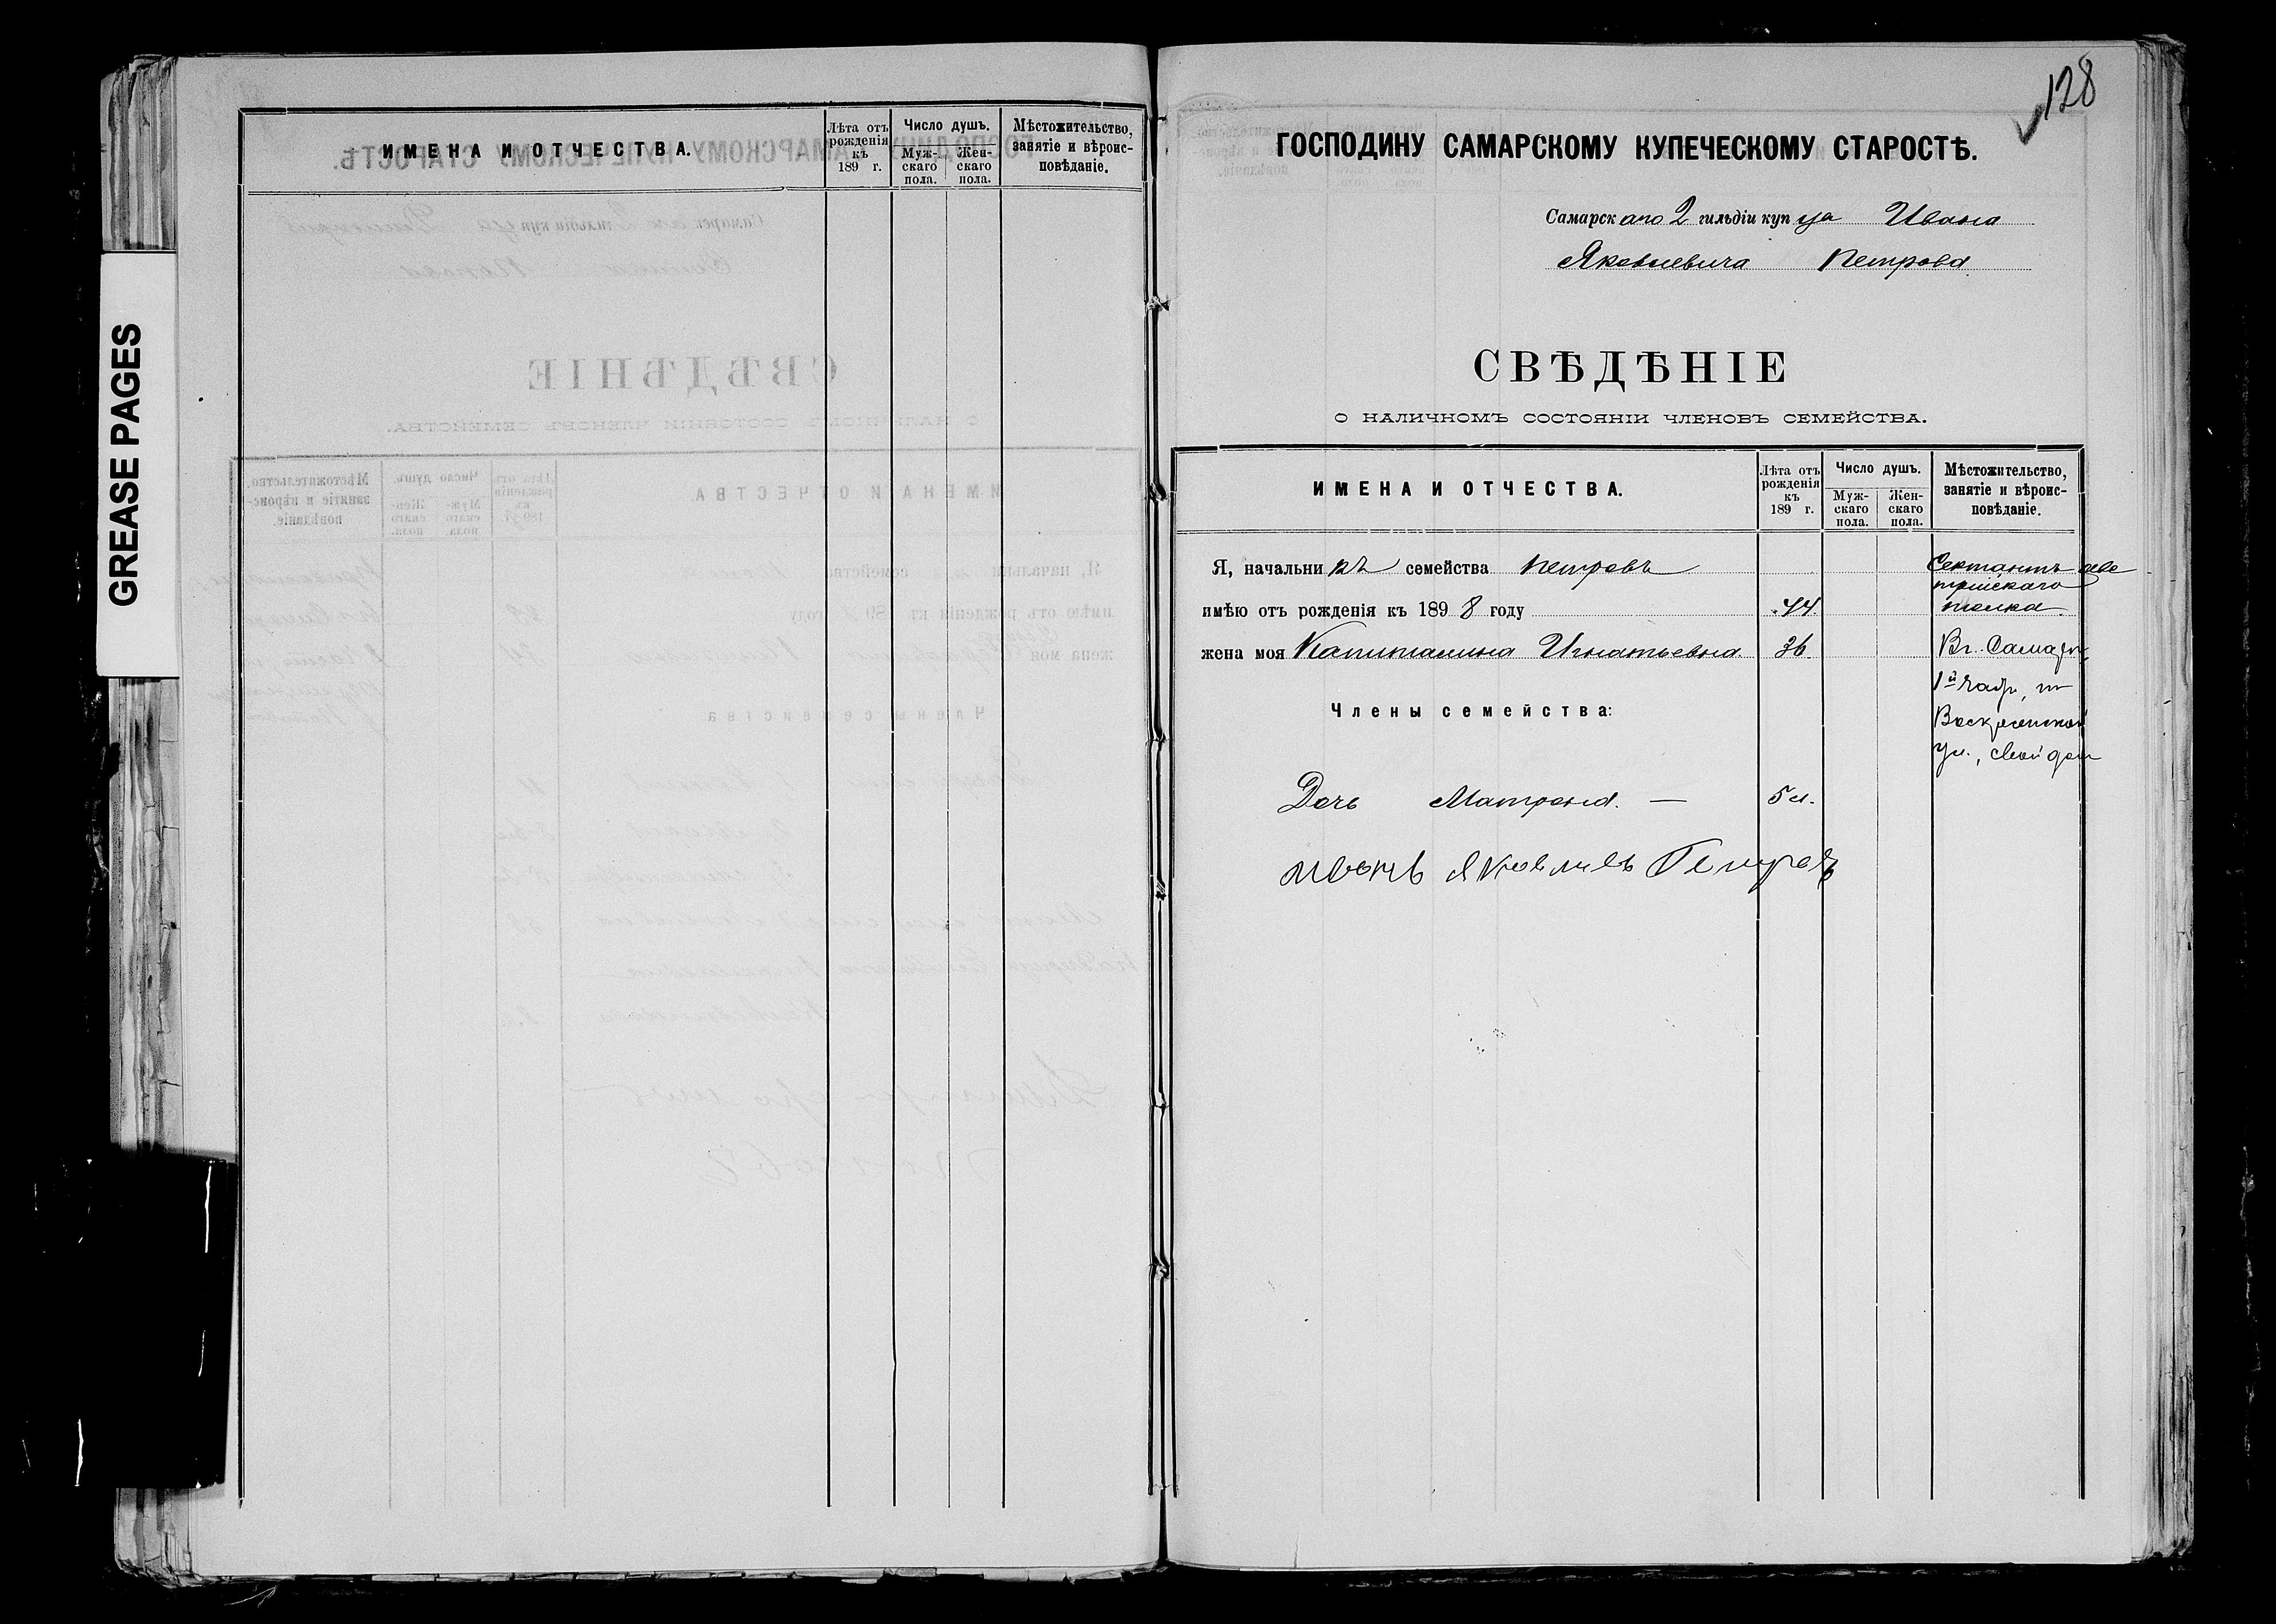 GREASE PAGES
ИМЕНА И ОТЧЕСТВА.
Лѣта отъ рожденія къ 189 г.
Число душъ.
Мужскаго пола.
Женскаго пола.
Мѣстожительство, занятіе и вѣроисповѣданіе.
128
ГОСПОДИНУ САМАРСКОМУ КУПЕЧЕСКОМУ СТАРОСТѢ.
Самарскаго 2 гильдіи купца Ивана
Яковлевича Петрова.
СВѢДѢНІЕ
О НАЛИЧНОМЪ СОСТОЯНІИ ЧЛЕНОВЪ СЕМЕЙСТВА.
ИМЕНА И ОТЧЕСТВА.
Лѣта отъ рожденія къ 189 г.
Число душъ.
Мужскаго пола.
Женскаго пола.
Мѣстожительство, занятіе и вѣроисповѣданіе.
Я, начальникъ семейства Петровъ
Сектантъ авс
трійскаго
имѣю отъ рожденія къ 1898 году 44.
толка.
жена моя Капиталина Игнатьевна. 36.
Въ г. Самарѣ,
1й части, по
Члены семейства:
Воскресенской
ул., свой домъ
Дочь Матрона. — 5 л.
Иванъ Яковлевъ Петровъ